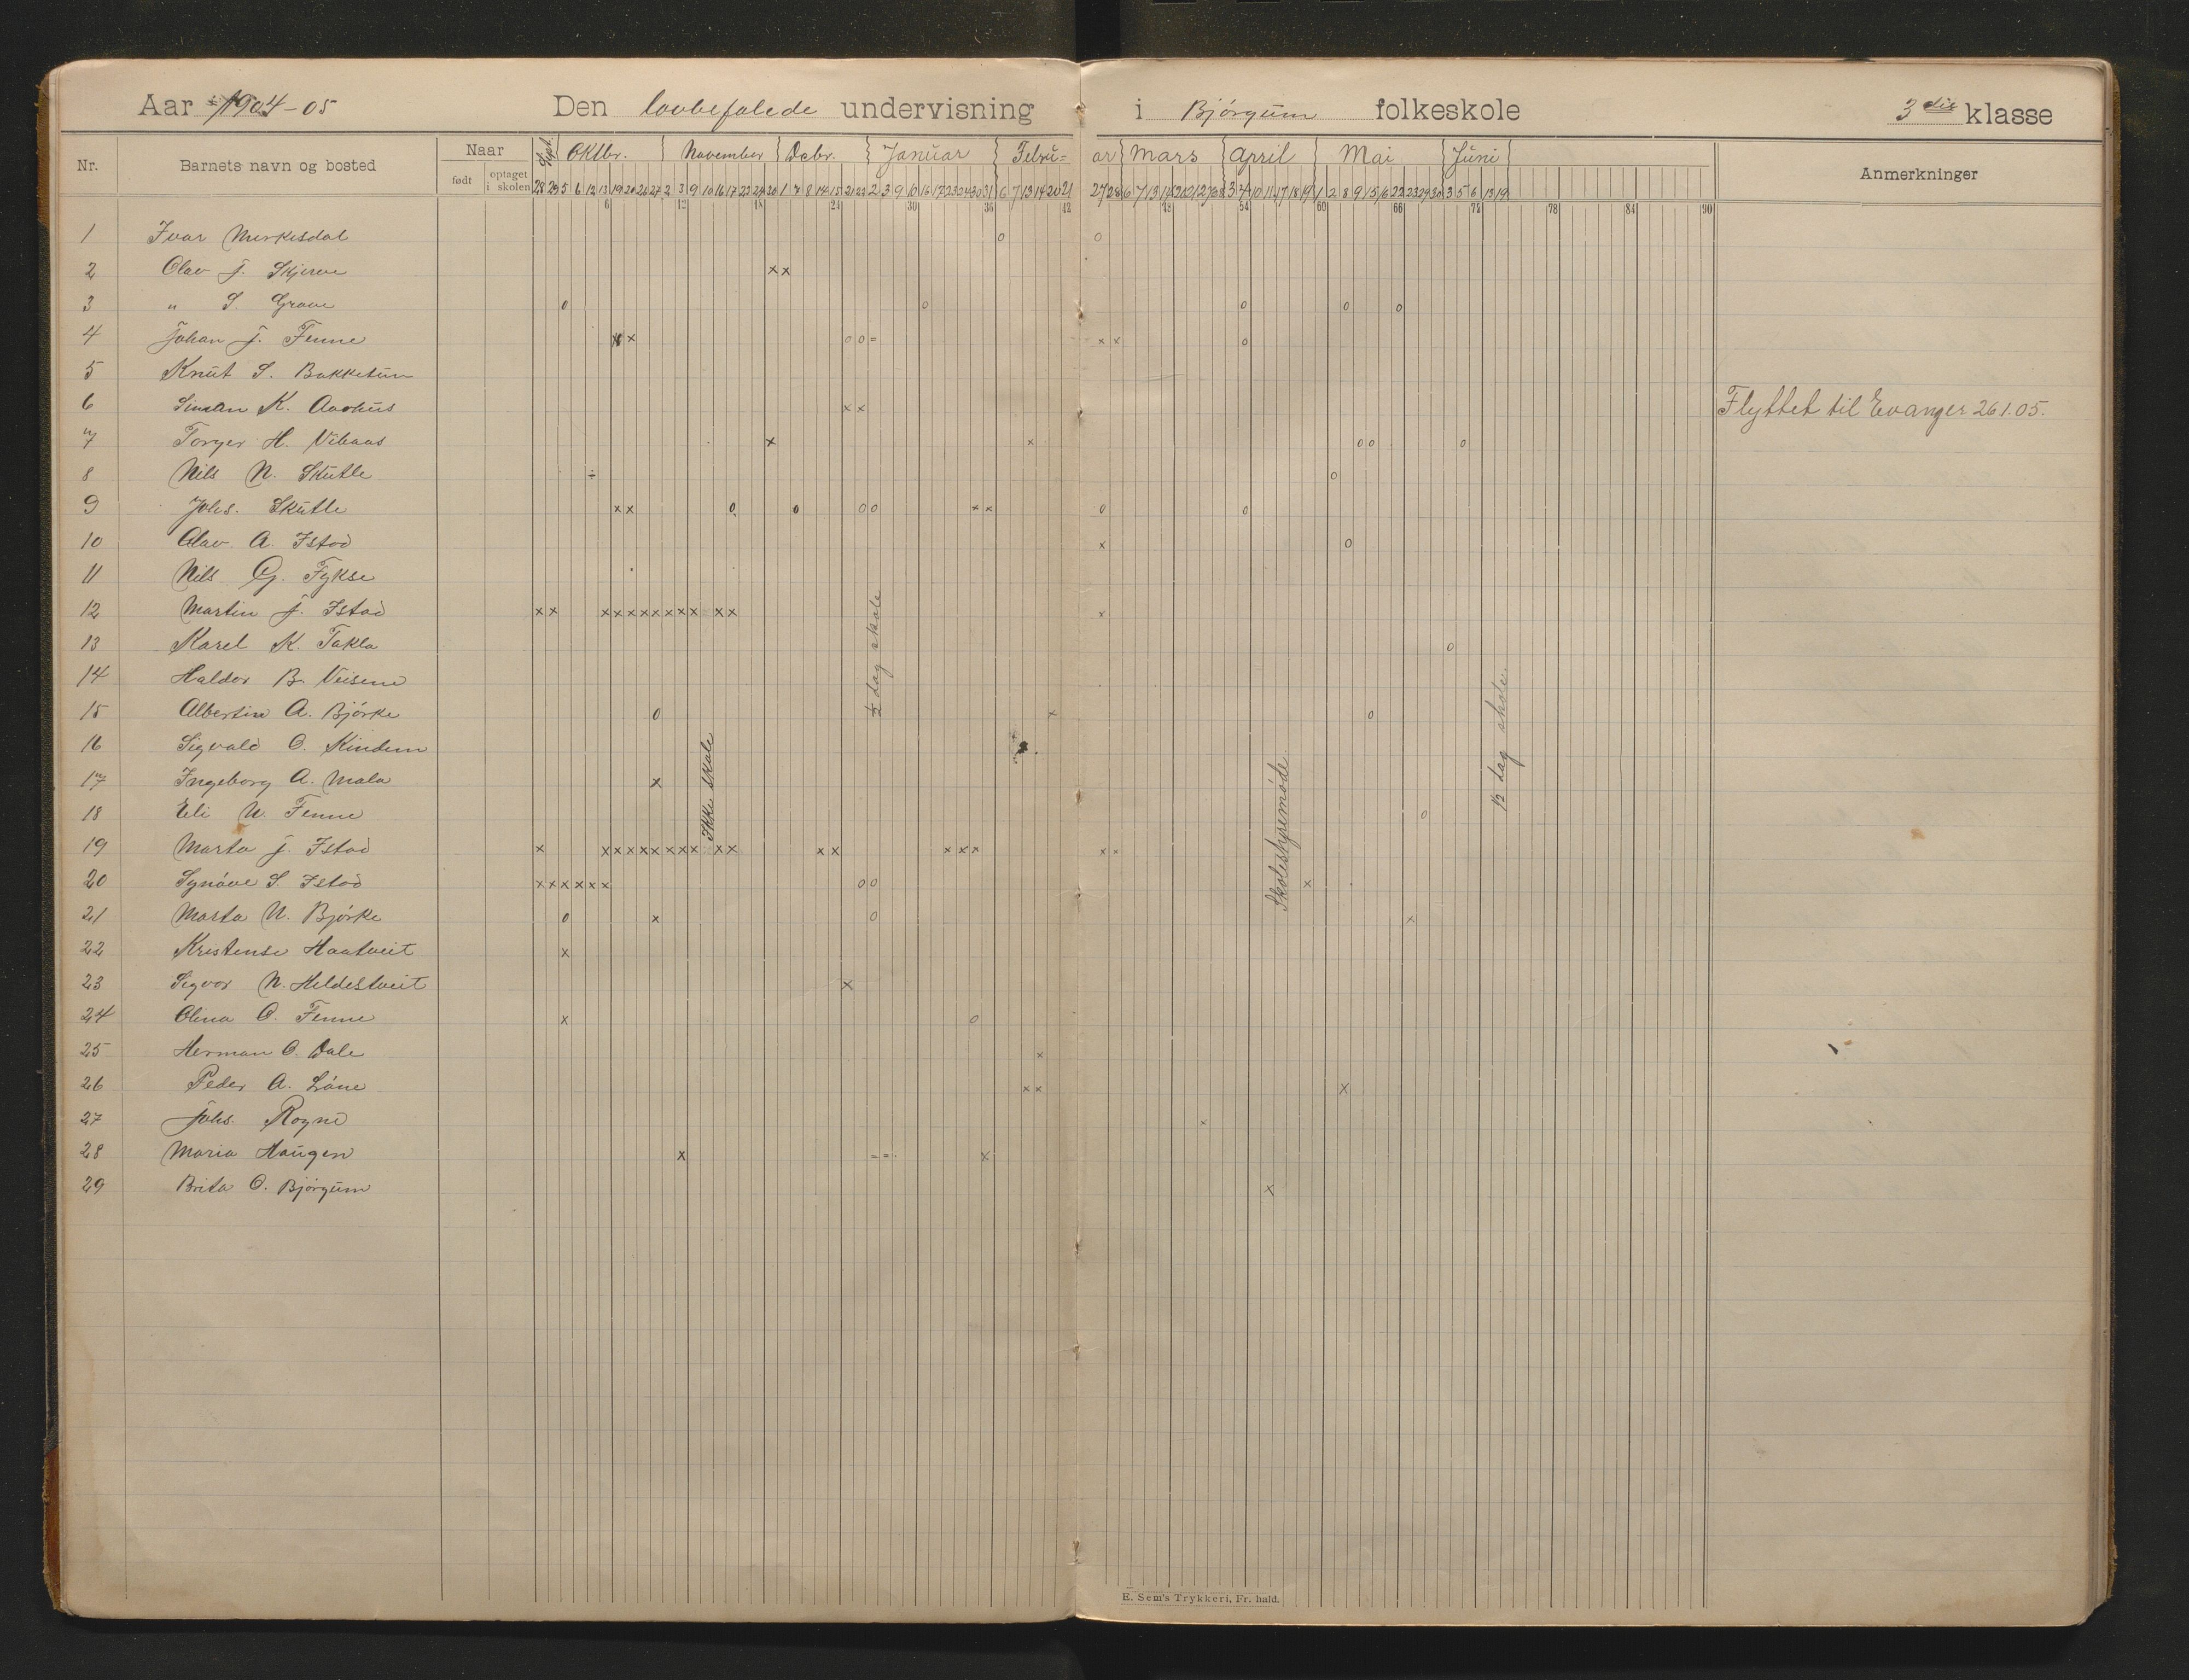 Aar 1904-05 Den lovbefalede undervisning i Bjørgum folkeskole 3die klasse
Nr. Barnets navn og bosted Naar født optaget i skolen Sept. Oktbr. November Debr. Januar Febru= ar Mars April Mai Juni Anmerkninger
28 29 5 6 12 13 19 20 26 27 2 3 9 10 16 17 23 24 30 1 7 8 14 15 21 22 2 3 9 10 16 17 23 24 30 31 6 7 13 14 20 21 27 28 6 7 13 14 20 21 27 28 3 4 10 11 17 18 19 1 2 8 9 15 16 22 23 29 30 3 5 6 13 19
6 12 18 24 30 36 42 48 54 60 66 72 78 84 90
1 Ivar Mirkesdal o o
2 Olav J. Skjerve x x
3 " S. Grove o o o o o
4 Johan J. Fenne x x o o = x x o
5 Knut S. Bakketun
6 Simon K. Aarhus x x Flyttet til Evanger 26.1.05.
7 Torger H. Vihaas x x o o o
8 Nils N. Skutle ÷ o
9 Johs. Skutle x x o o o o x x o o
10 Olav A. Istad x o
11 Nils G. Fykse
12 Martin J. Istad x x x x x x x x x x x x x
13 Karel K. Takla o
14 Haldor B. Veisene
15 Albertin A. Bjørke o x o
16 Sigvald O. Kindem
17 Ingeborg A. Mala x
18 Eli N. Fenne o
19 Marta J. Istad x x x x x x x x x x x x x x x x x x
20 Synøve S. Istad x x x x x x o o x
21 Marta N. Bjørke o x o x
22 Kristense Haatveit x
23 Sigvor N. Hildestveit x
24 Olina O. Fenne x o
25 Herman O. Dale x
26 Peder A. Løne x x x
27 Johs. Rogne x
28 Maria Haugen x = = x
29 Brita O. Bjørgum x
Ikke skole
½ dag skole
Skolestyremøde
½ dag skole
E. Sem's Trykkeri, Fr. hald.